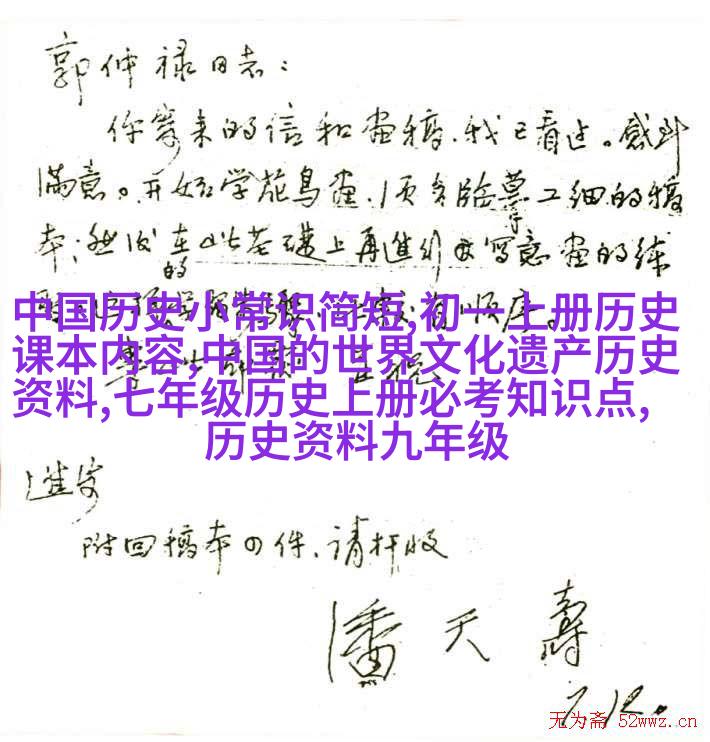 郭仲禄同志：
你寄来的信和画稿，我已看过。感到
满意。开始学花鸟画，须多临摹工细的稿
本；然后在此基础上再进行写意画的练
的
中国历史小常识简短,初一上册历史
课本内容,中国的世界文化遗产历史
资料,七年级历史上册必考知识点,
历史资料九年级
进安
附回稿本四件、请检收
潘天寿
7.12.
无为斋 52wwz.cn